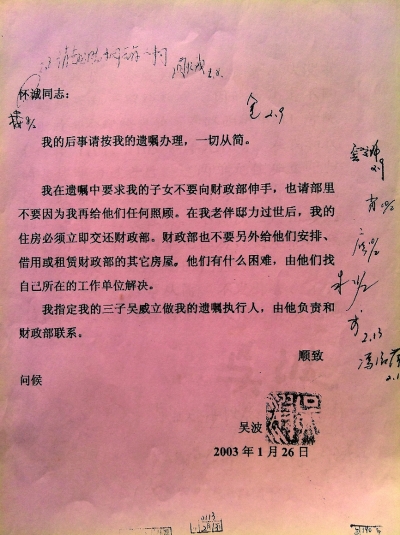 怀诚同志：
我的后事请按我的遗嘱办理，一切从简。
我在遗嘱中要求我的子女不要向财政部伸手，也请部里
不要因为我再给他们任何照顾。在我老伴邸力过世后，我的
住房必须立即交还财政部。财政部也不要另外给他们安排、
借用或租赁财政部的其它房屋。他们有什么困难，由他们找
自己所在的工作单位解决。
我指定我的三子吴威立做我的遗嘱执行人，由他负责和
财政部联系。
顺致
问候
吴波
2003 年 1 月 26 日
2.9
2.9
2.13